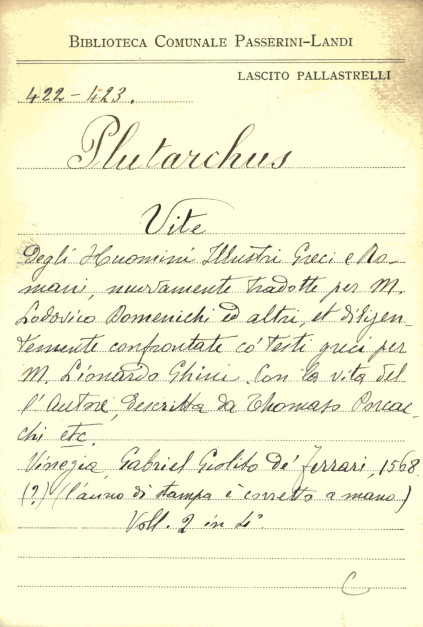 BIBLIOTECA COMUNALE PASSERINI-LANDI
LASCITO PALLASTRELLI
422-423.
Plutarchus
Vite
degli Huomini Illustri Greci e Ro-
mani, nuovamente tradotte per M.
Lodovico Domenichi ed altri, et diligen-
temente confrontate co' testi greci per
M. Lionardo Ghini. Con la vita del
l'Autore, descritta da Thomaso Porcac-
chi etc.
Vinegia, Gabriel Giolito de' Ferrari, 1568
(?) (l'anno di stampa è corretto a mano)
Voll. 2 in 4°
C